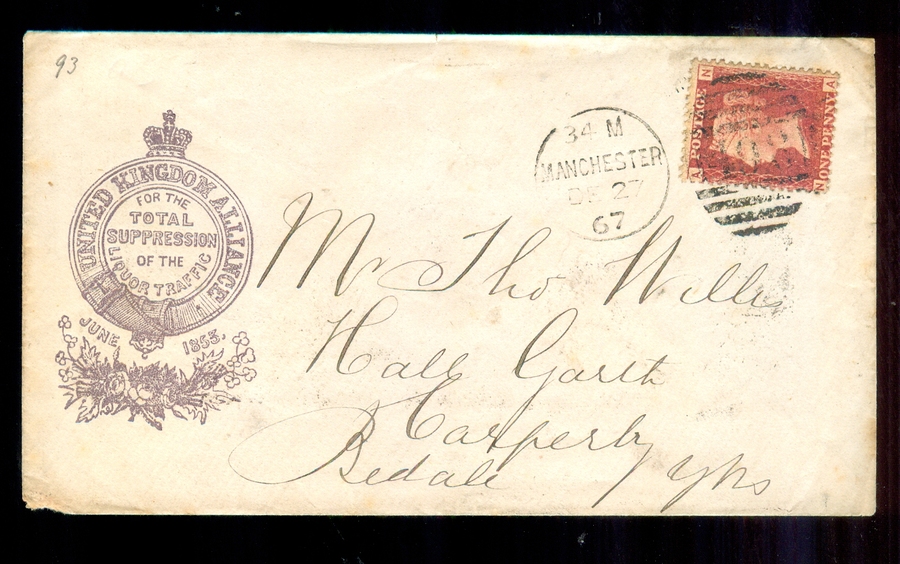 93
UNITED KINGDOM ALLIANCE
FOR THE
TOTAL
SUPPRESSION
OF THE
LIQUOR TRAFFIC
JUNE 1853.
34 M
MANCHESTER
DE 27
67
N A
POSTAGE
ONE PENNY
A N
Mr Tho Willis
Hall Garth
Carperby
Bedale Yks